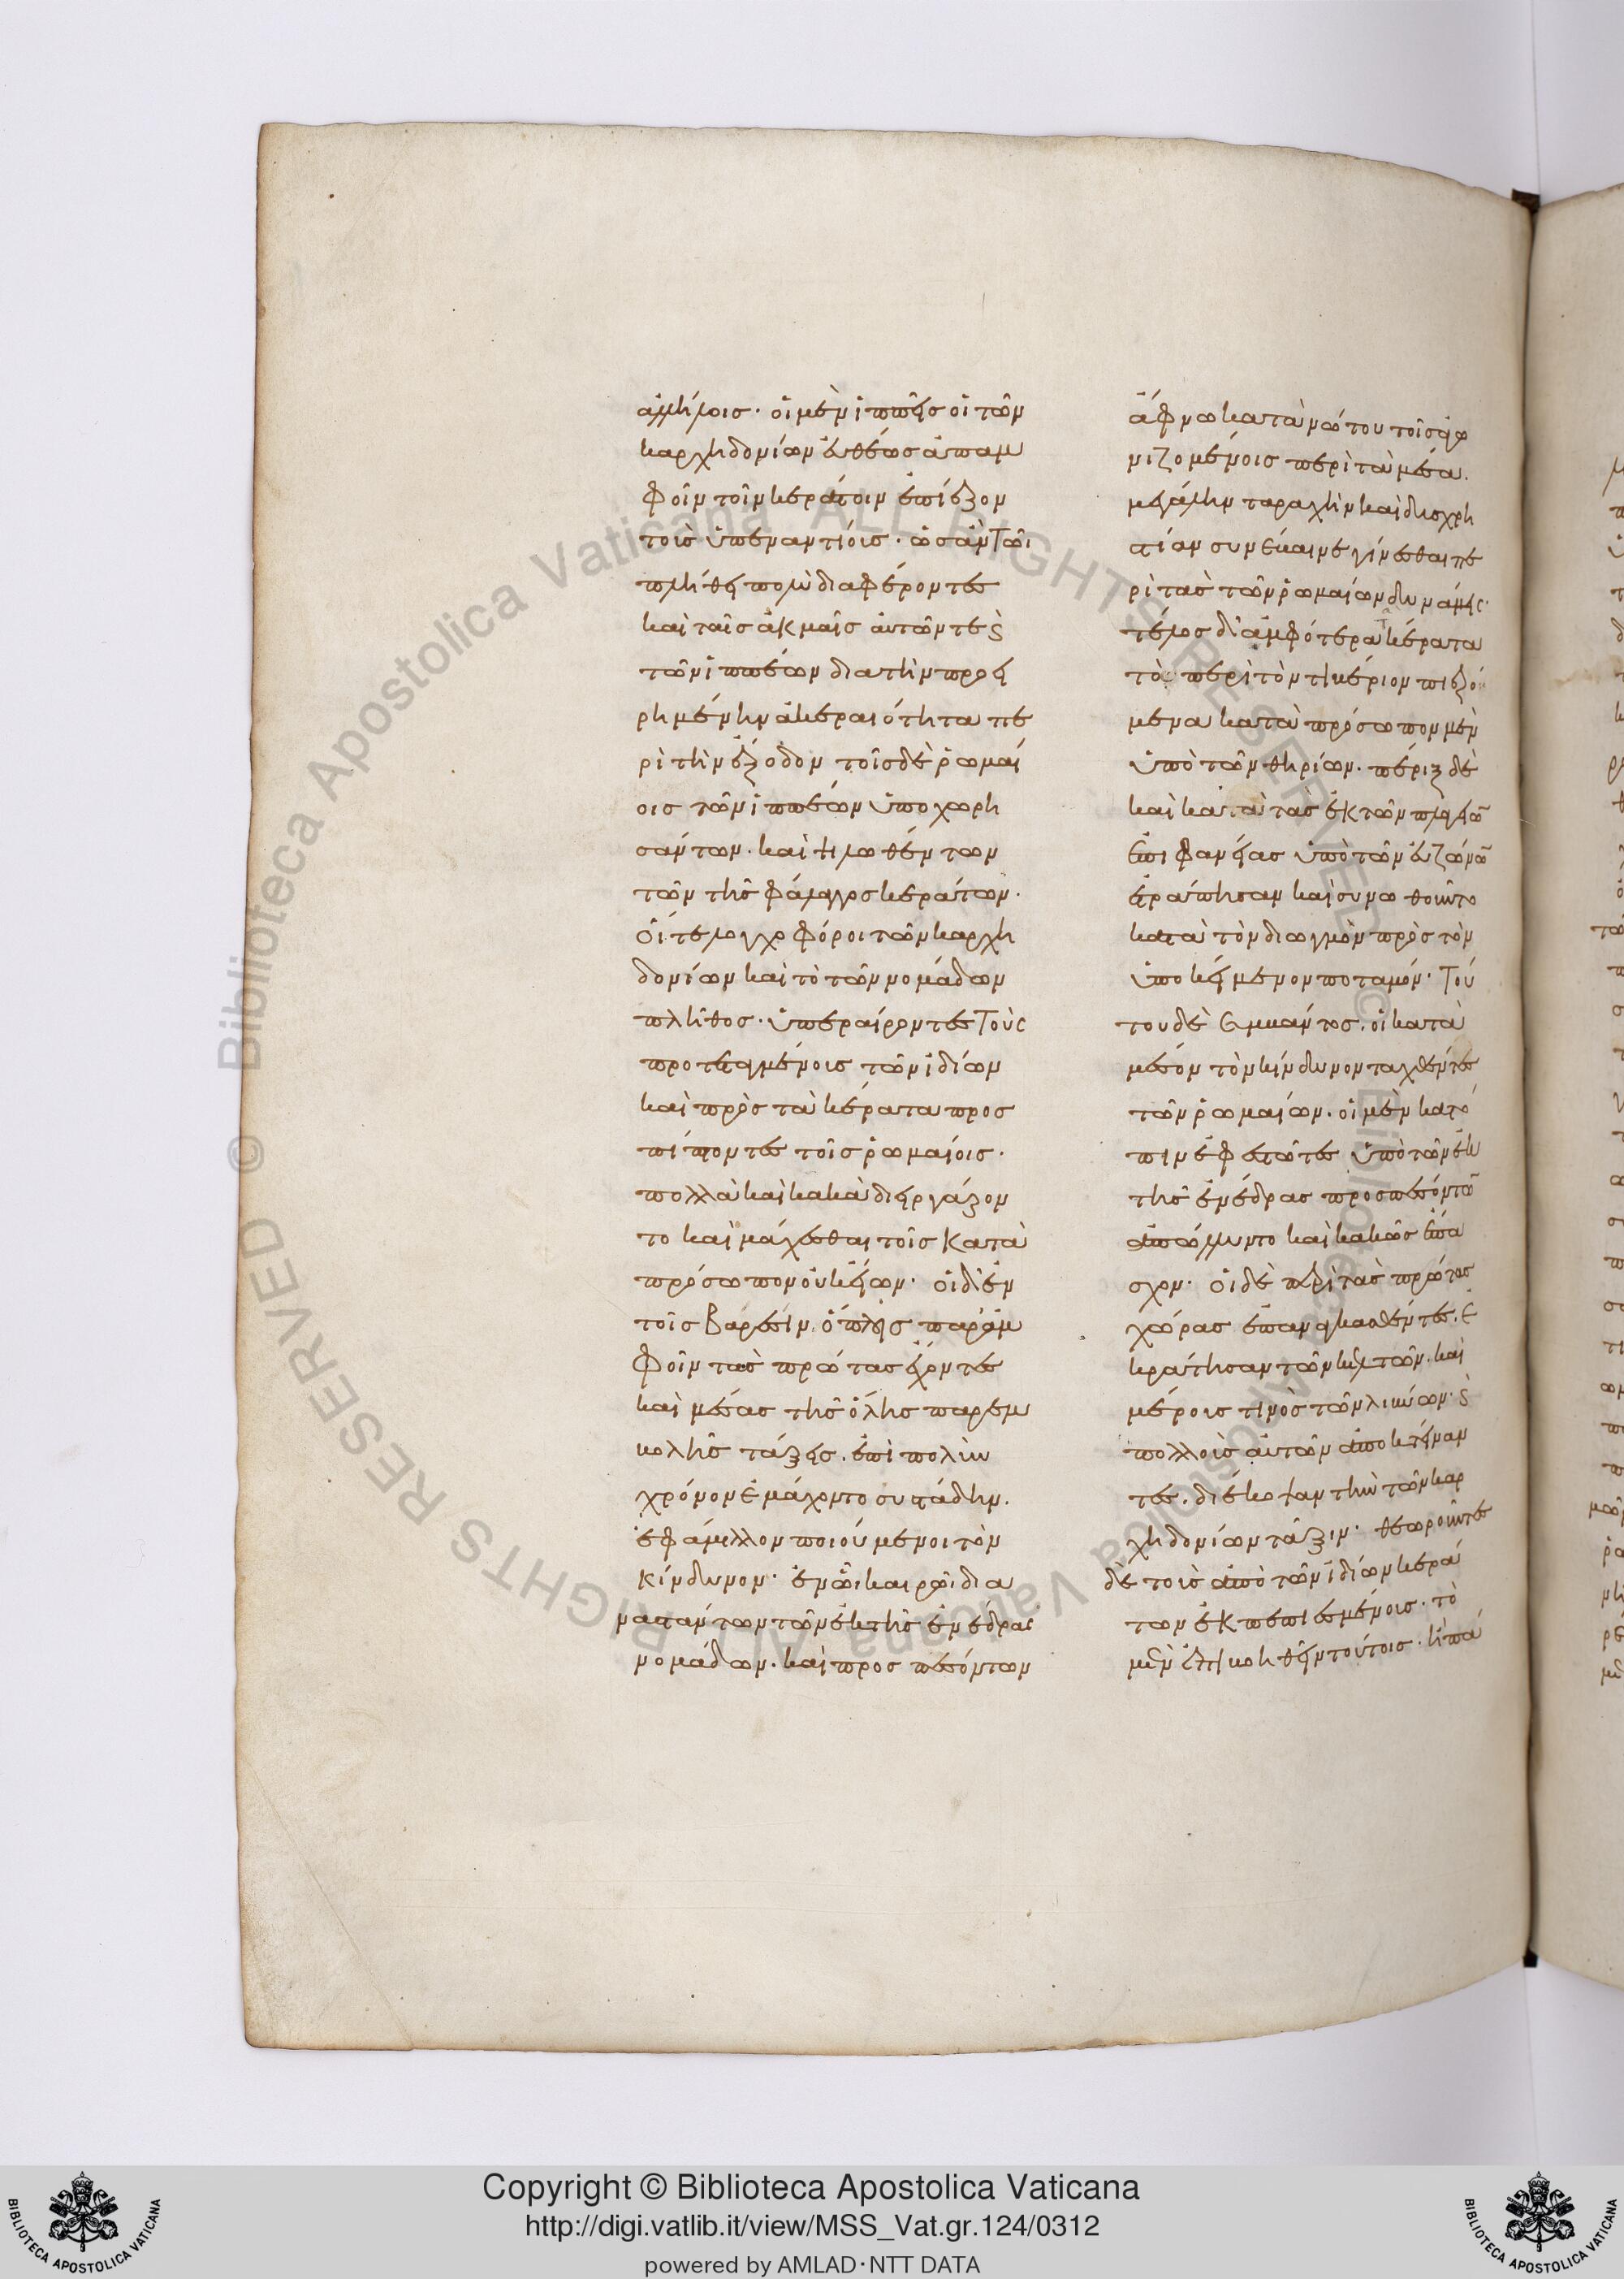 ἀλλήλοις· οἱ μὲν ἱππεῖς οἱ τῶν
καρχηδονίων εὐθέως ἀπαμ
φοῖν τοῖν κεράτοιν ἐπίεζον
τοὺς ὑπεναντίους· ὡσὰν τῶι
πλήθει πολὺ διαφέροντες
καὶ ταῖς ἀκμαῖς αὐτῶν τε καὶ
τῶν ἱππέων διὰ τὴν προει
ρημένην ἀκεραιότητα πε
ρὶ τὴν ἔξοδον τοῖς δὲ ῥωμαί
οις τῶν ἱππέων ὑποχωρη
σάντων· καὶ ψιλωθέντων
τῶν τῆς φάλαγγος κεράτων·
οἵ τε λογχοφόροι τῶν καρχη
δονίων καὶ τὸ τῶν νομάδων
πλῆθος· ὑπεραίροντες τοὺς
προτεταγμένους τῶν ἰδίων
καὶ πρὸς τὰ κέρατα προσ
πίπτοντες τοῖς ῥωμαίοις·
πολλὰ καὶ κακὰ διειργάζον
το καὶ μάχεσθαι τοῖς κατὰ
πρόσωπον οὐκ εἴων· οἱ δ' ἐν
τοῖς βαρέσιν ὅπλοις παρ' ἀμ
φοῖν τὰς πρώτας ἔχοντες
καὶ μέσας τῆς ὅλης παρεμ
βολῆς τάξεις· ἐπὶ πολὺν
χρόνον ἐμάχοντο συστάδην·
ἐφάμιλλον ποιούμενοι τὸν
κίνδυνον· ἐν ὧι καιρῶι δια
ναστάντων τῶν ἐκ τῆς ἐνέδρας
νομάδων· καὶ προσπεσόντων
ἄφνω κατὰ νώτου τοῖς ἀγω
νιζομένοις περὶ τὰ μέσα·
μεγάλην ταραχὴν καὶ δυσχρη
στίαν συνέβαινε γίνεσθαι πε
ρὶ τὰς τῶν ῥωμαίων δυνάμεις·
τέλος δ' ἀμφότερα τὰ κέρατα
τὸ περὶ τὸν τιβέριον πιεζού
μενα κατὰ πρόσωπον μὲν
ὑπὸ τῶν θηρίων· πέριξ δὲ
καὶ κατὰ τὰς ἐκ τῶν πλαγίων
ἐπιφανείας ὑπὸ τῶν εὐζώνων
ἐτράπησαν καὶ συνωθοῦντο
κατὰ τὸν διωγμὸν πρὸς τὸν
ὑποκείμενον ποταμόν· τού
του δὲ συμβάντος· οἱ κατὰ
μέσον τὸν κίνδυνον ταχθέντες
τῶν ῥωμαίων· οἱ μὲν κατό
πιν ἐφεστῶτες ὑπὸ τῶν ἐκ
τῆς ἐνέδρας προσπεσόντων
ἀπώλλυντο καὶ κακῶς ἔπα
σχον· οἱ δὲ περὶ τὰς πρώτας
χώρας ἐπαναγκασθέντες· ἐ
κράτησαν τῶν κελτῶν· καὶ
μέρους τινὸς τῶν λιβύων· καὶ
πολλοὺς αὐτῶν ἀποκτείναν
τες· διέκοψαν τὴν τῶν καρ
χηδονίων τάξιν· θεωροῦντες
δὲ τοὺς ἀπὸ τῶν ἰδίων κερά
των ἐκπεπιεσμένους· τὸ
μὲν ἐπιβοηθεῖν τούτοις· ἢ πά